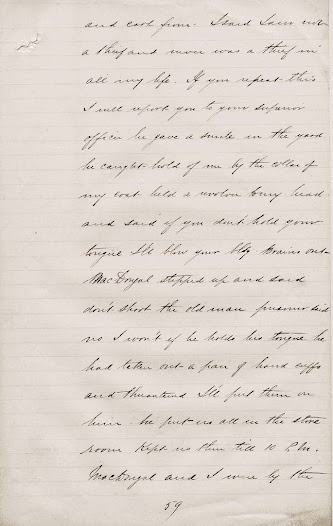 and cash from. I said I am not
a thief and never was a thief in
all my life. If you repeat this
I will report you to your superior
officer he gave a smile in the yard
he caught hold of me by the collar of
my coat held a revolver to my head
and said if you don't hold your
tongue I'll blow your bly Brains out
MacDougal stepped up and said
don't shoot the old man prisoner said
no I won't if he holds his tongue he
had taken out a pair of hand cuffs
and threatened I'll put them on
him. he put us all in the store
room kept us then till 10 P.M.
MacDougal and I were by the
59